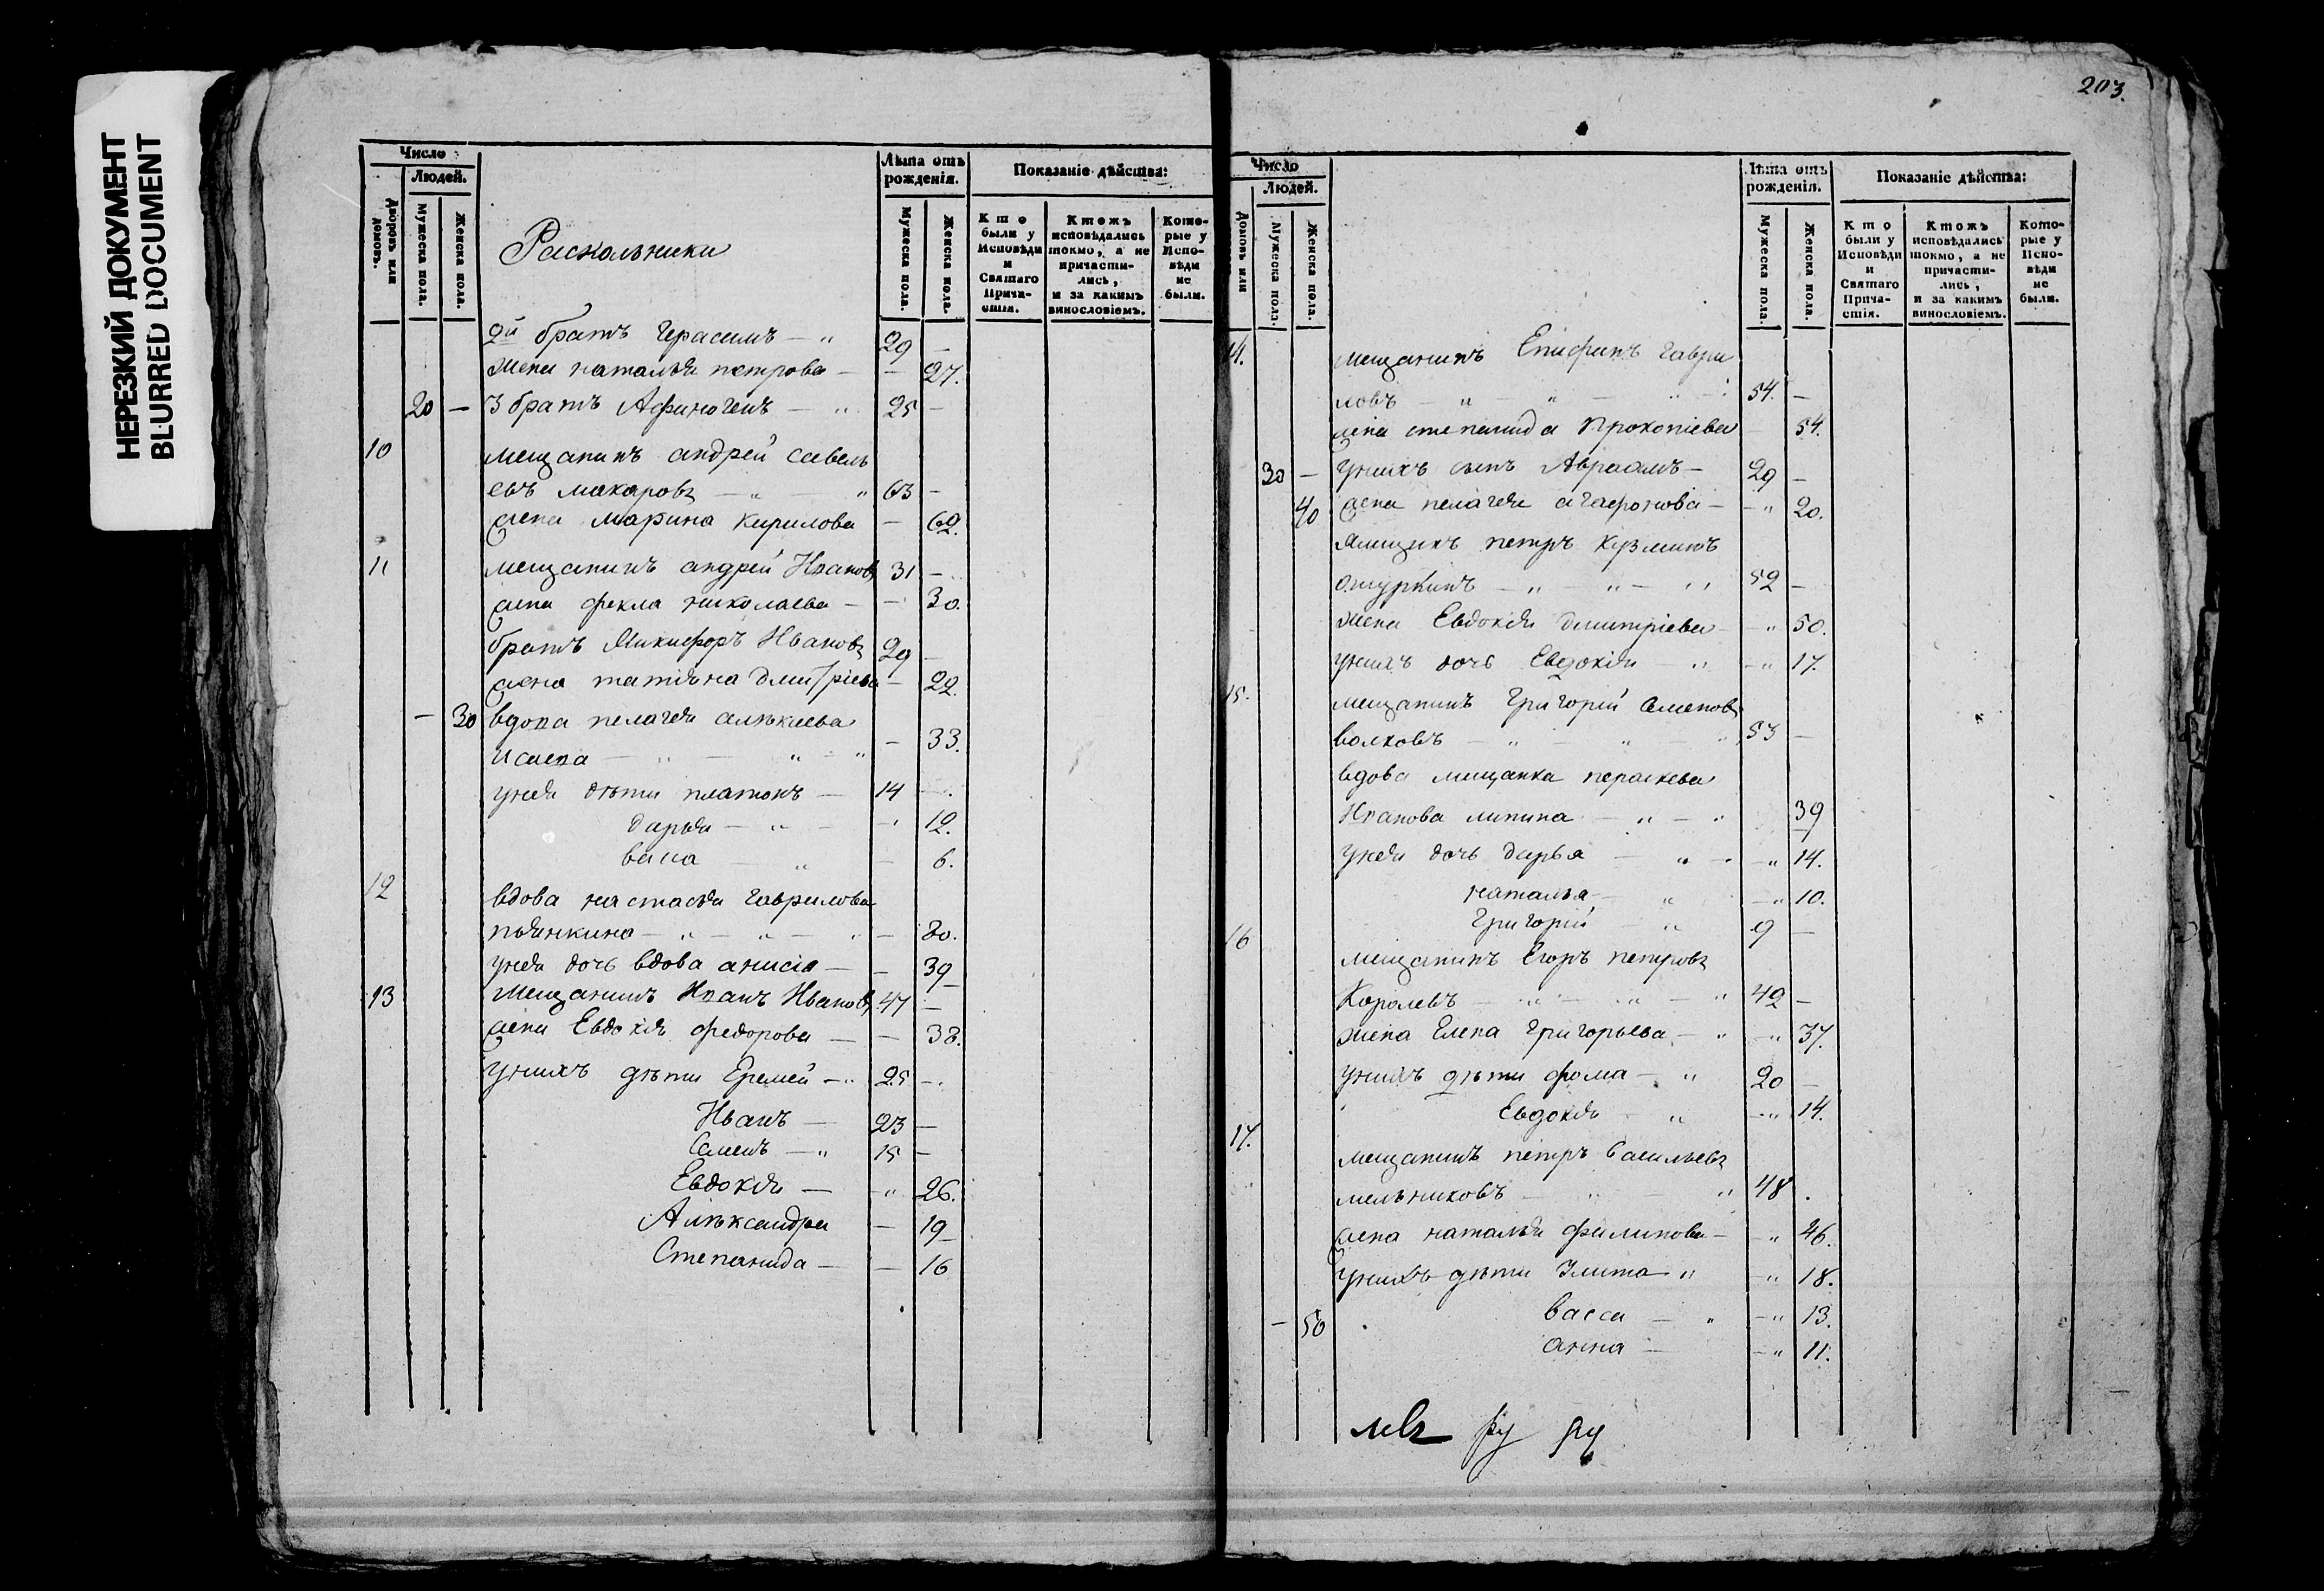 НЕРЕЗКИЙ ДОКУМЕНТ
BLURRED DOCUMENT
Число
Людей.
Дворовъ или домовъ.
Мужеска пола.
Женска пола.
Лѣта отъ рожденія.
Мужеска пола.
Женска пола.
Показаніе дѣйства:
Кто были у Исповѣди и Святаго Прича-стія.
Ктожъ исповѣдались токмо, а не причасти-лись, и за какимъ винословіемъ.
Кото-рые у Испо-вѣди не были.
Раскольники
2й братъ Герасимъ — „ 29 —
жена наталья петрова — — 27.
20 — 3 братъ Афиногенъ — „ 25 —
10 мещанинъ андрей савель
евъ макаровъ — „ — „ 63 —
жена марина кирилова — 62.
11 мещанинъ андрей Ивановъ 31 —
жена фекла николаева — — 30.
братъ Никифоръ Ивановъ 29 —
жена татіяна дмитріева — 22.
— 30 вдова пелагея алѣкиева
Исаева — „ — „ — „ — 33.
унея дѣти платонъ — 14 —
дарья — „ — — 12.
васа — „ — 6.
12 вдова настасья гаврилова
пьянкина — „ — „ — „ — 80.
унея дочь вдова анисіа — — 39
13 мещанинъ Иванъ Ивановъ 47 —
жена Евдокія федорова — — 38.
унихъ дѣти Еремей — „ 25 —
Иванъ — 23 —
Семенъ — „ 15 —
Евдокія — „ 26.
Алѣксандра — 19
Степанида — — 16
203.
Число
Людей.
Домовъ или
Мужеска пола.
Женска пола.
Лѣта отъ рожденія.
Мужеска пола.
Женска пола.
Показаніе дѣйства:
Кто были у Исповѣди и Святаго Прича-стія.
Ктожъ исповѣдались токмо, а не причасти-лись, и за какимъ винословіемъ.
Кото-рые у Испо-вѣди не были.
14. мещанинъ Епифанъ Гаври
ловъ — „ — „ — „ 54. —
жена степанида Прокопіева 54.
30 — унихъ сынъ Авраамъ — 29 —
40 жена пелагея агафонова — — „ 20.
Ямщикъ петръ кузминъ
— „ — „ — „ 52 —
жена Евдокія дмитріева „ 50.
унихъ дочь Евдокія — „ — „ 17.
15. мещанинъ Григорій семеновъ
волковъ — „ — „ — „ 53 —
вдова мещанка параскева
Иванова липина — „ — „ 39
унея дочь дарья — „ — — „ 14.
наталья — „ — „ 10.
Григорій „ 9 —
16 мещанинъ Егоръ петровъ
Королевъ — „ — „ — „ 42 —
жена Елена Григорьева — „ — „ 37.
унихъ дѣти фома — „ 20 —
Евдокія „ — „ 14.
17. мещанинъ петръ васильевъ
мельниковъ — „ „ 48 .
жена наталья филипова — „ 46.
унихъ дѣти Улита „ — „ 18.
— 50 васса — „ — „ 13.
анна — — „ 11.